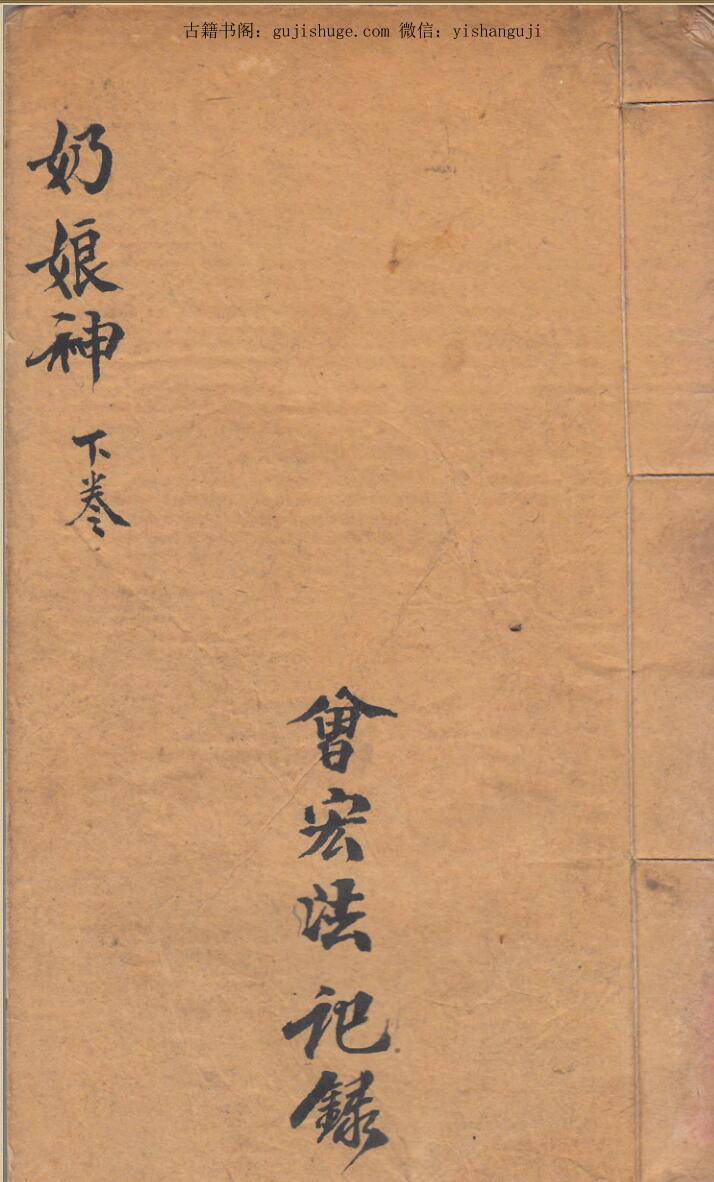 古籍书阁：gujishuge.com 微信：yishanguji
奶娘神 下卷
曾宏法记録